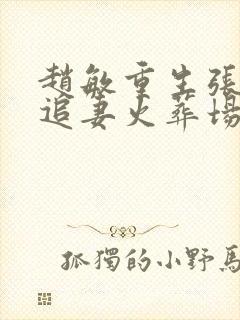 趙敏重生張
追妻火葬場
孤獨的小野馬